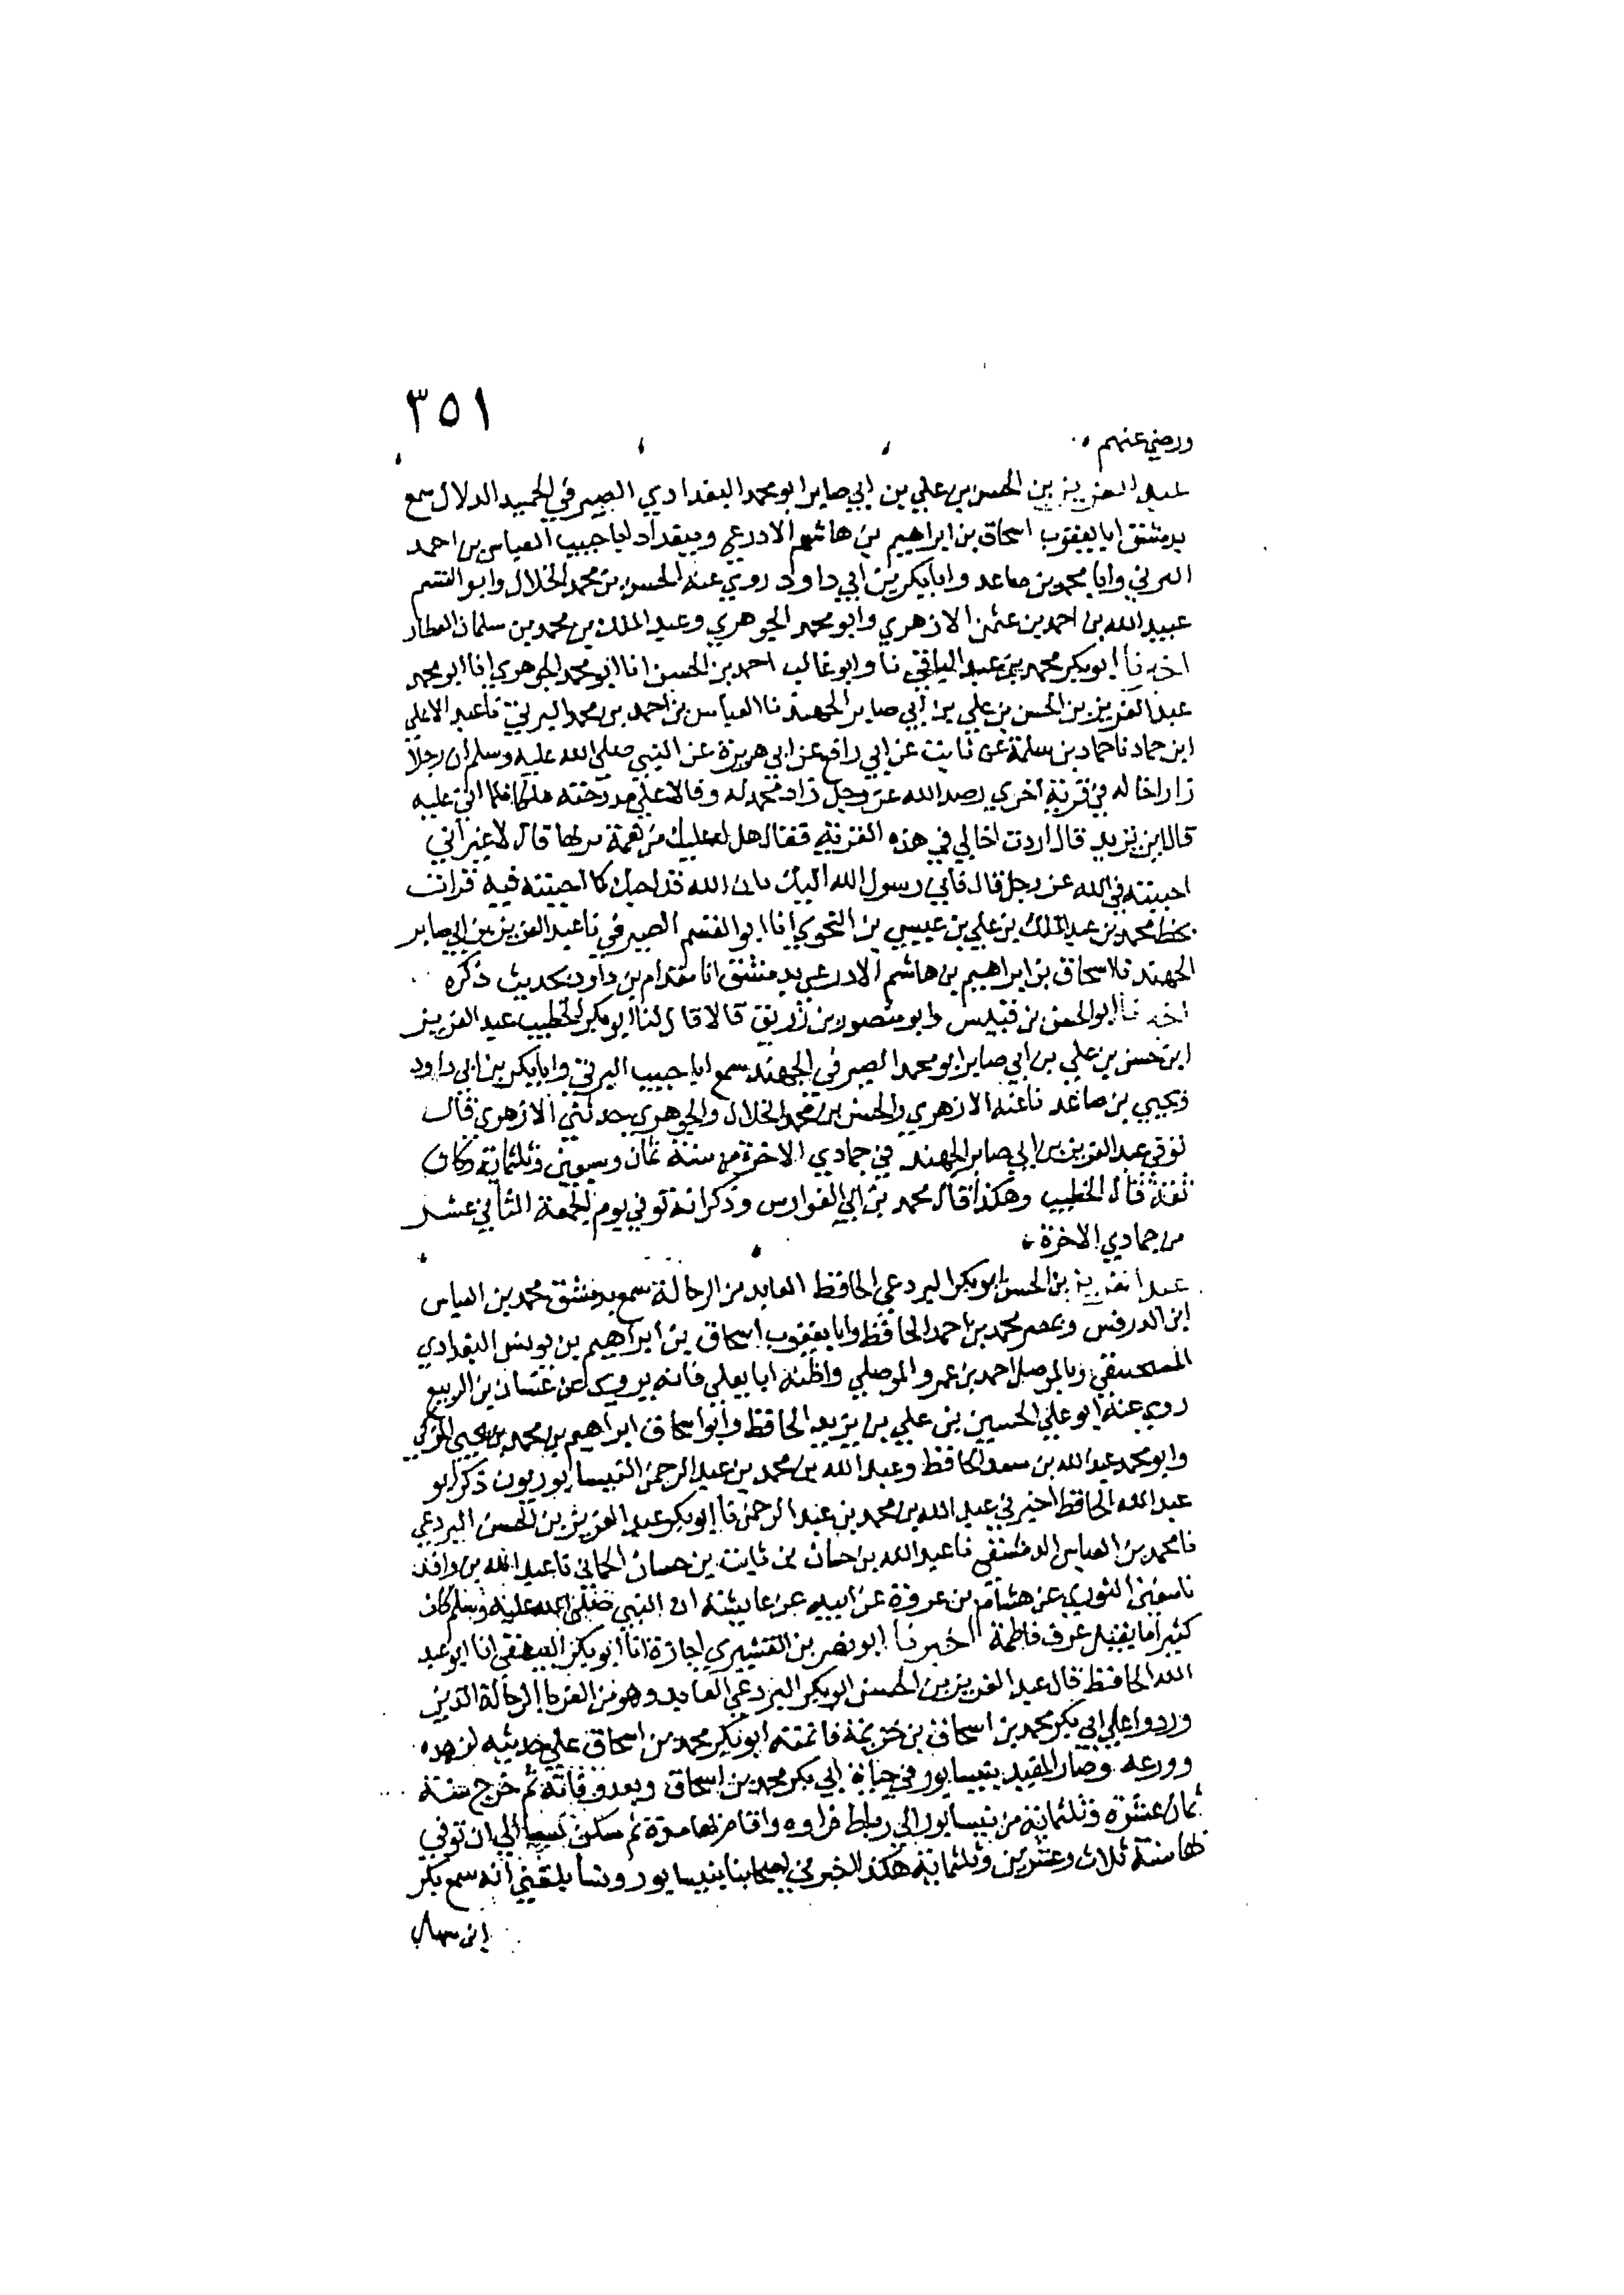 ٣٥١
ورضي عنهم
عبد العزيز بن الحسن بن علي بن ابي صابر ابو محمد البغدادي الصيرفي الجهبد الدلال سمع
بدمشق ابا يعقوب اسحاق بن ابراهيم بن هاشم الادرعي وببغداد ابا حبيب العباس بن احمد
البرتي وابا محمد بن صاعد وابا بكر بن ابي داود روي عنه الحسن بن محمد الخلال وابو القسم
عبيد الله بن احمد بن عثمن الازهري وابو محمد الجوهري وعبد الملك بن محمد بن سلمان العطار
اخبرنا ابو بكر محمد بن عبد الباقي نا وابو غالب احمد بن الحسن انا ابو محمد الجوهري انا ابو محمد
عبد العزيز بن الحسن بن علي بن ابي صابر الجهبد نا العباس بن احمد بن محمد البرتي نا عبد الاعلي
ابن حماد نا حماد بن سلمة عن ثابت عن ابي رافع عن ابي هريرة عن النبي صلي الله عليه وسلم ان رجلا
زار اخا له في قرية اخري رصد الله عز وجل زاد محمد له وقالا علي مدرجته ملكا فلما اتي عليه
قال اين تريد قال اردت اخا لي في هذه القرية فقال هل له عليك من نعمة تربها قال لا غير اني
احببته في الله عز وجل قال فاني رسول الله اليك بان الله قد احبك كما احببته فيه قرات
بخط محمد بن عبد الملك بن علي بن عيسي بن النحوي انا ابو القسم الصيرفي نا عبد العزيز بن ابي صابر
الجهبد نا اسحاق بن ابراهيم بن هاشم الادرعي بدمشق انا مقدام بن داود بحديث ذكره
اخبرنا ابو الحسن بن قبيس وابو منصور بن زريق قالا قال لنا ابو بكر الخطيب عبد العزيز
ابن حسن بن علي بن ابي صابر ابو محمد الصيرفي الجهبد سمع ابا حبيب البرتي وابا بكر بن ابي داود
ويحيي بن صاعد نا عنه الازهري والحسن بن محمد الخلال والجوهري حدثني الازهري قال
توفي عبد العزيز بن ابي صابر الجهبد في جمادي الاخرة من سنة ثمان وسبعين وثلثماية وكان
ثقة قال الخطيب وهكذا قال محمد بن ابي الفوارس وذكر انه توفي يوم الجمعة الثاني عشر
من جمادي الاخرة
عبد العزيز بن الحسن ابو بكر البردعي الحافظ العابد من الرحالة سمع بدمشق محمد بن العباس
ابن الدرفس وبمصر محمد بن احمد الحافظ وابا يعقوب اسحاق بن ابراهيم بن يونس البغدادي
المنجنيقي وبالموصل احمد بن عمرو الموصلي واظنه ابا يعلي فانه يروي عن غسان بن الربيع
روي عنه ابو علي الحسين بن علي بن يزيد الحافظ وابو اسحاق ابراهيم بن محمد بن يحيي المزكي
وابو محمد عبد الله بن سعد الحافظ وعبد الله بن محمد بن عبد الرحمن النيسابوريون ذكر ابو
عبد الله الحافظ اخبرني عبد الله بن محمد بن عبد الرحمن نا ابو بكر عبد العزيز بن الحسن البردعي
نا محمد بن العباس الدمشقي نا عبد الله بن حسان بن ثابت بن حسان الحماني نا عبد الله بن واقد
نا سفين الثوري عن هشام بن عروة عن ابيه عن عايشة ان النبي صلي الله عليه وسلم كان
كثيرا ما يقبل عرف فاطمة اخبرنا ابو نصر بن القشيري اجازة انا ابو بكر البيهقي انا ابو عبد
الله الحافظ قال عبد العزيز بن الحسن ابو بكر البردعي العابد وهو من الغربا الرحالة الذين
وردوا علي ابي بكر محمد بن اسحاق بن خزيمة فاتمنه ابو بكر محمد بن اسحاق علي حديثه لزهده
وورعه وصار المفيد بنيسابور في حياة ابي بكر محمد بن اسحاق وبعد وفاته ثم خرج سنة
ثمان عشرة وثلثماية من نيسابور الي رباط فراوه واقام بها مدة ثم سكن نسا الي ان توفي
بها سنة ثلاث وعشرين وثلثماية هكذا اخبرني اصحابنا بنيسابور ونسا بلغني انه سمع بكر
ابن سهل